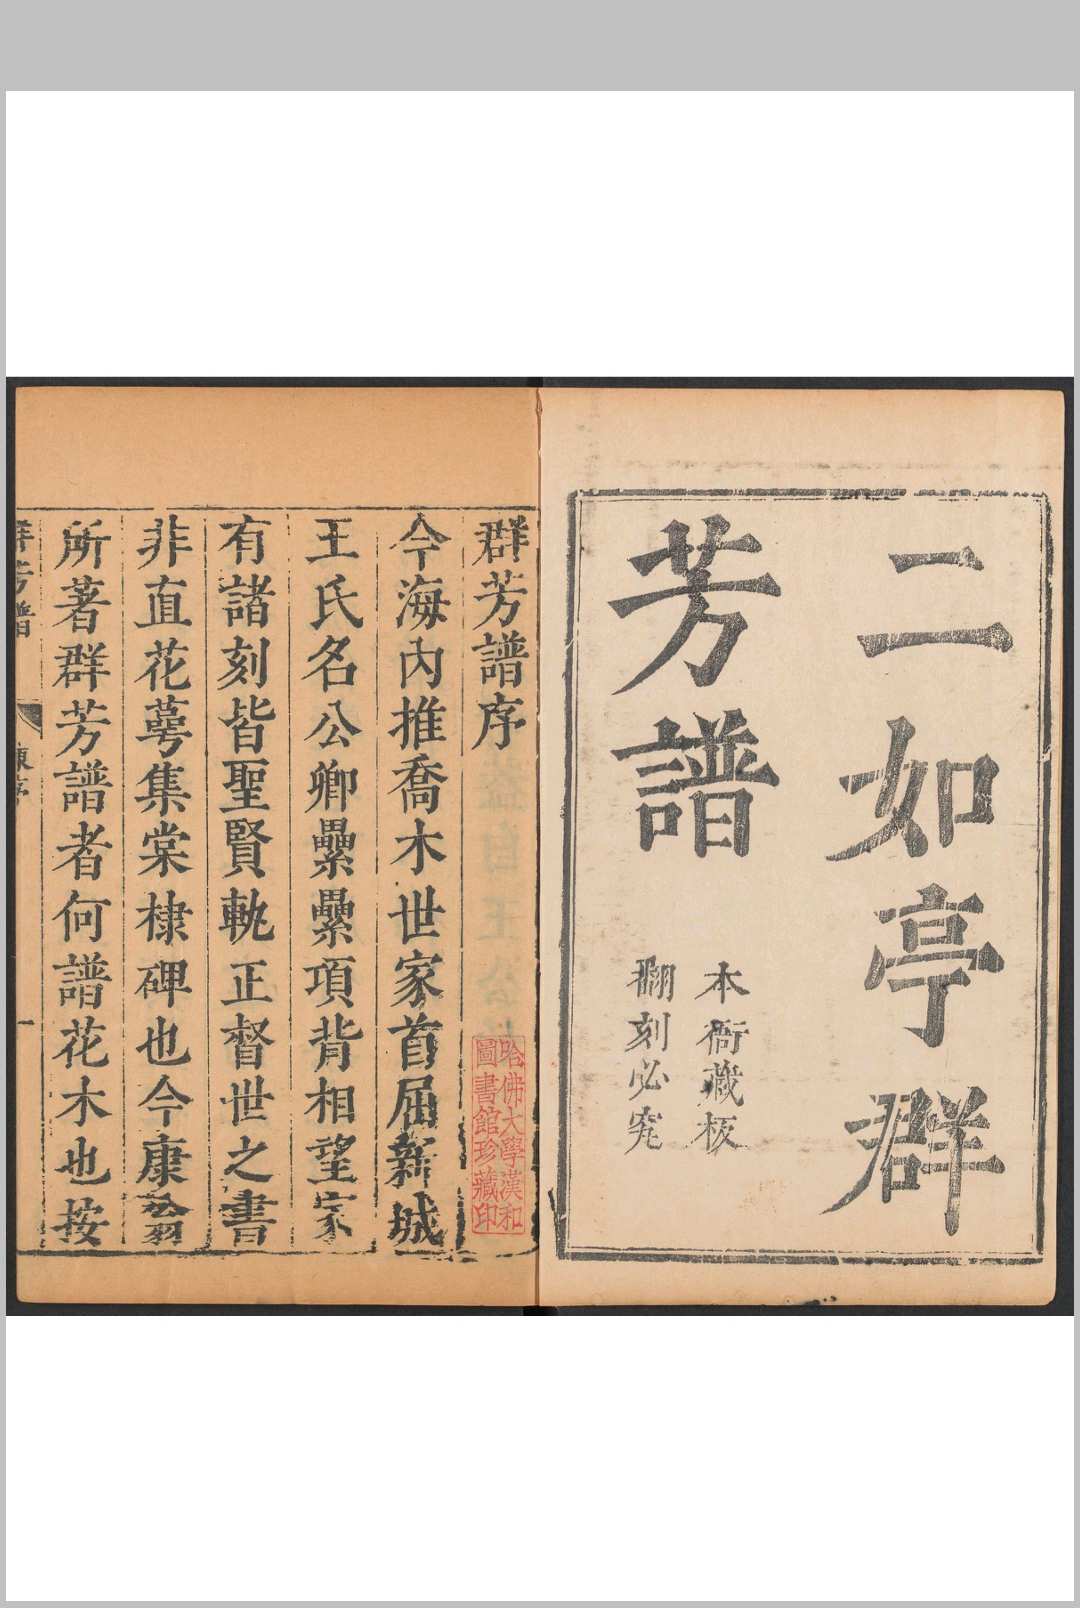 二如亭群
芳譜
本衙藏板
翻刻必究
群芳譜序
今海內推喬木世家首屈新城
王氏名公卿纍纍項背相望家
有諸刻皆聖賢軌正督世之書
非直花萼集棠棣碑也今康翁
所著群芳譜者何譜花木也按
群芳譜
序
一
哈佛大學漢和
圖書館珍藏印